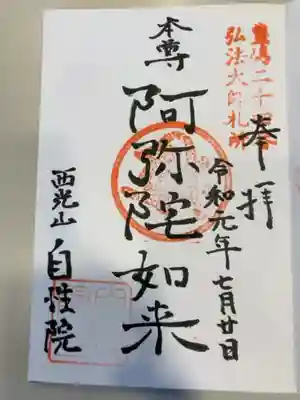 奉拝
弘法大師札所
令和元年七月廿日
本尊
阿弥陀如来
西光山
自性院